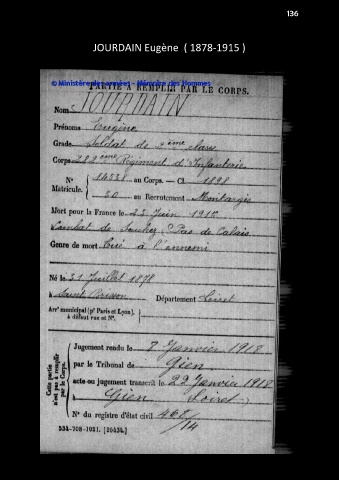 136
JOURDAIN Eugène ( 1878-1915 )
PARTIE A REMPLIR PAR LE CORPS.
© Ministère des armées - Mémoire des Hommes
Nom JOURDAIN
Prénoms Eugène
Grade Soldat de 2ème classe
Corps 282ème Régiment d'Infanterie
N° Matricule. 14338 au Corps. — Cl. 1898
20 au Recrutement Montargis
Mort pour la France le 22 Juin 1915
Combat de Souchez Pas de Calais
Genre de mort Tué à l'ennemi
Né le 31 Juillet 1878
à Sainte Brisson Département Loiret
Arrt municipal (pr Paris et Lyon), à défaut rue et N°.
Cette partie n'est pas à remplir par le Corps.
Jugement rendu le 7 Janvier 1918
par le Tribunal de Gien
acte ou jugement transcrit le 22 Janvier 1918
à Gien Loiret
N° du registre d'état civil 468/14
534-708-1921. [26434.]